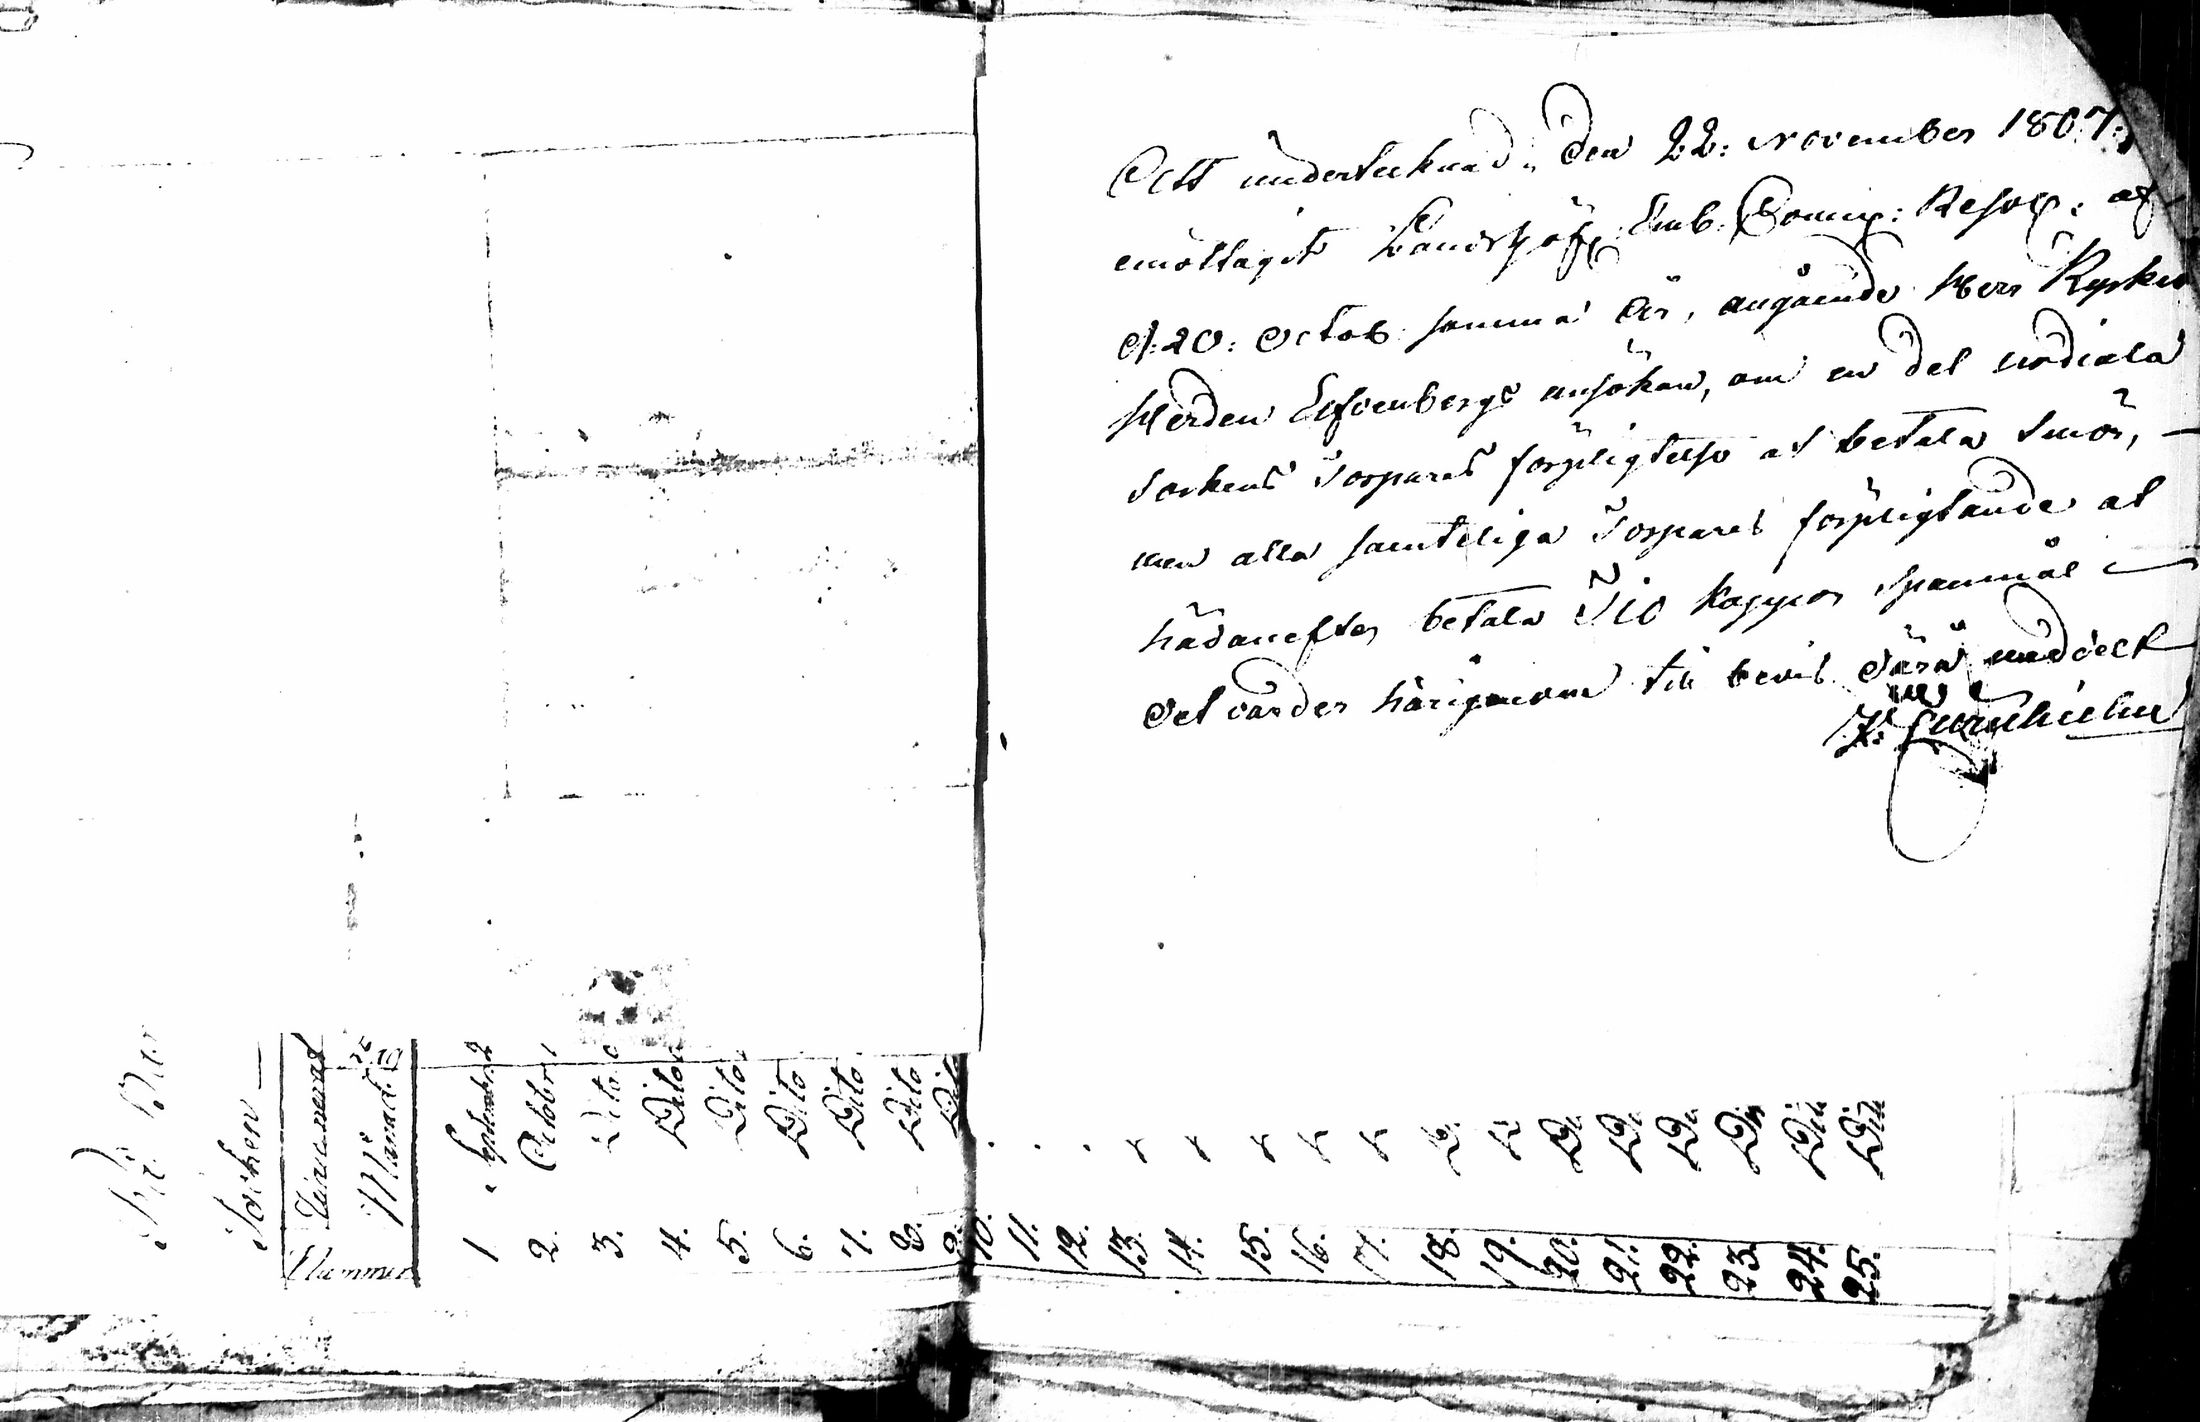 Att undertecknad, den 22: November 1807,
emottagit Landshöfg: Emb. Comis: Resol: af
d: 20: Octob: samma år, angående Herr Kyrko
Herden Elfvenbergs ansökan, om en del
Sockens Torpares förpligtelse at betala smör,
men alla samteliga Torpares förpligtande at
hädanefter betala Tio kappor spanmål
det varder härigenom til bevis
Socken
Nummer
Månad
1. September
2. Octobr
3. Dito
4. Dito
5. Dito
6. Dito
7. Dito
8. Dito
9. Dito
10.
11.
12.
13.
14.
15.
16.
17.
18.
19.
20. Di
21. Di
22. Di
23. Di
24. Dit
25. Dit